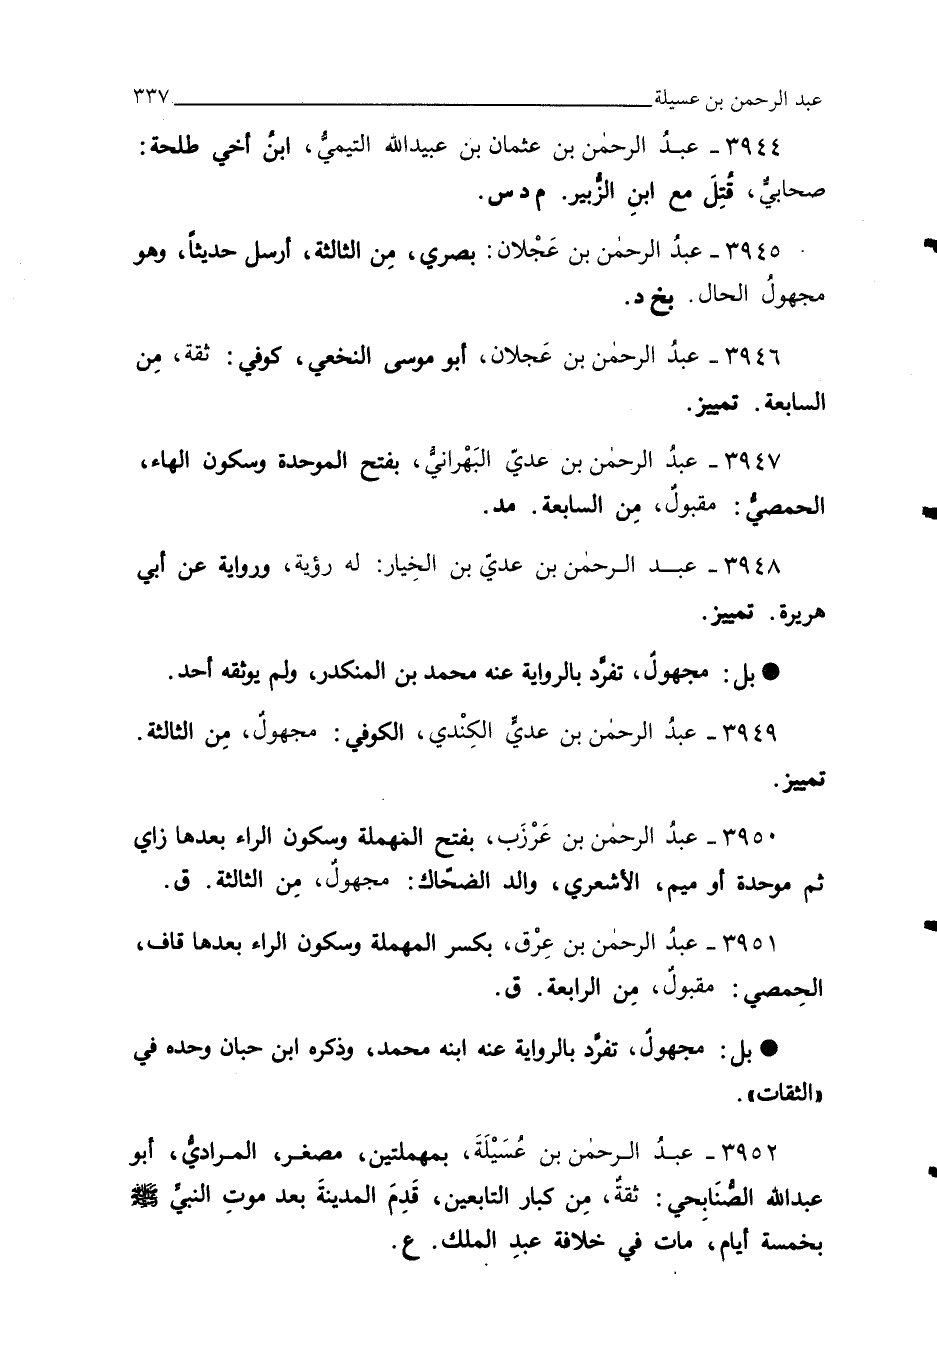 عبد الرحمن بن عسيلة ٣٣٧
٣٩٤٤ ـ عبدُ الرحمٰن بن عثمان بن عبيدالله التيميُّ، ابنُ أخي طلحة:
صحابيٌّ، قُتِلَ مع ابنِ الزُّبير. م د س.
٣٩٤٥ ـ عبدُ الرحمٰن بن عَجْلان: بصري، مِن الثالثة، أرسل حديثاً، وهو
مجهولُ الحال. بخ د.
٣٩٤٦ ـ عبدُ الرحمٰن بن عَجلان، أبو موسى النخعي، كوفي: ثقة، مِن
السابعة. تمييز.
٣٩٤٧ ـ عبدُ الرحمٰن بن عديّ البَهْرانيُّ، بفتح الموحدة وسكون الهاء،
الحمصيُّ: مقبولٌ، مِن السابعة. مد.
٣٩٤٨ ـ عبد الرحمٰن بن عديّ بن الخِيار: له رؤية، ورواية عن أبي
هريرة. تمييز.
● بل: مجهولٌ، تفرَّد بالرواية عنه محمد بن المنكدر، ولم يوثقه أحد.
٣٩٤٩ ـ عبدُ الرحمٰن بن عديٍّ الكِنْدي، الكوفي: مجهولٌ، مِن الثالثة.
تمييز.
٣٩٥٠ ـ عبدُ الرحمٰن بن عَرْزَب، بفتح المهملة وسكون الراء بعدها زاي
ثم موحدة أو ميم، الأشعري، والد الضحّاك: مجهولٌ، مِن الثالثة. ق.
٣٩٥١ ـ عبدُ الرحمٰن بن عِرْق، بكسر المهملة وسكون الراء بعدها قاف،
الحِمصي: مقبولٌ، مِن الرابعة. ق.
● بل: مجهولٌ، تفرَّد بالرواية عنه ابنه محمد، وذكره ابن حبان وحده في
«الثقات».
٣٩٥٢ ـ عبدُ الرحمٰن بن عُسَيْلَةَ، بمهملتين، مصغر، المراديُّ، أبو
عبدالله الصُّنَابِحي: ثقةٌ، مِن كبار التابعين، قَدِمَ المدينةَ بعد موتِ النبيِّ ﷺ
بخمسة أيام، مات في خلافة عبدِ الملك. ع.